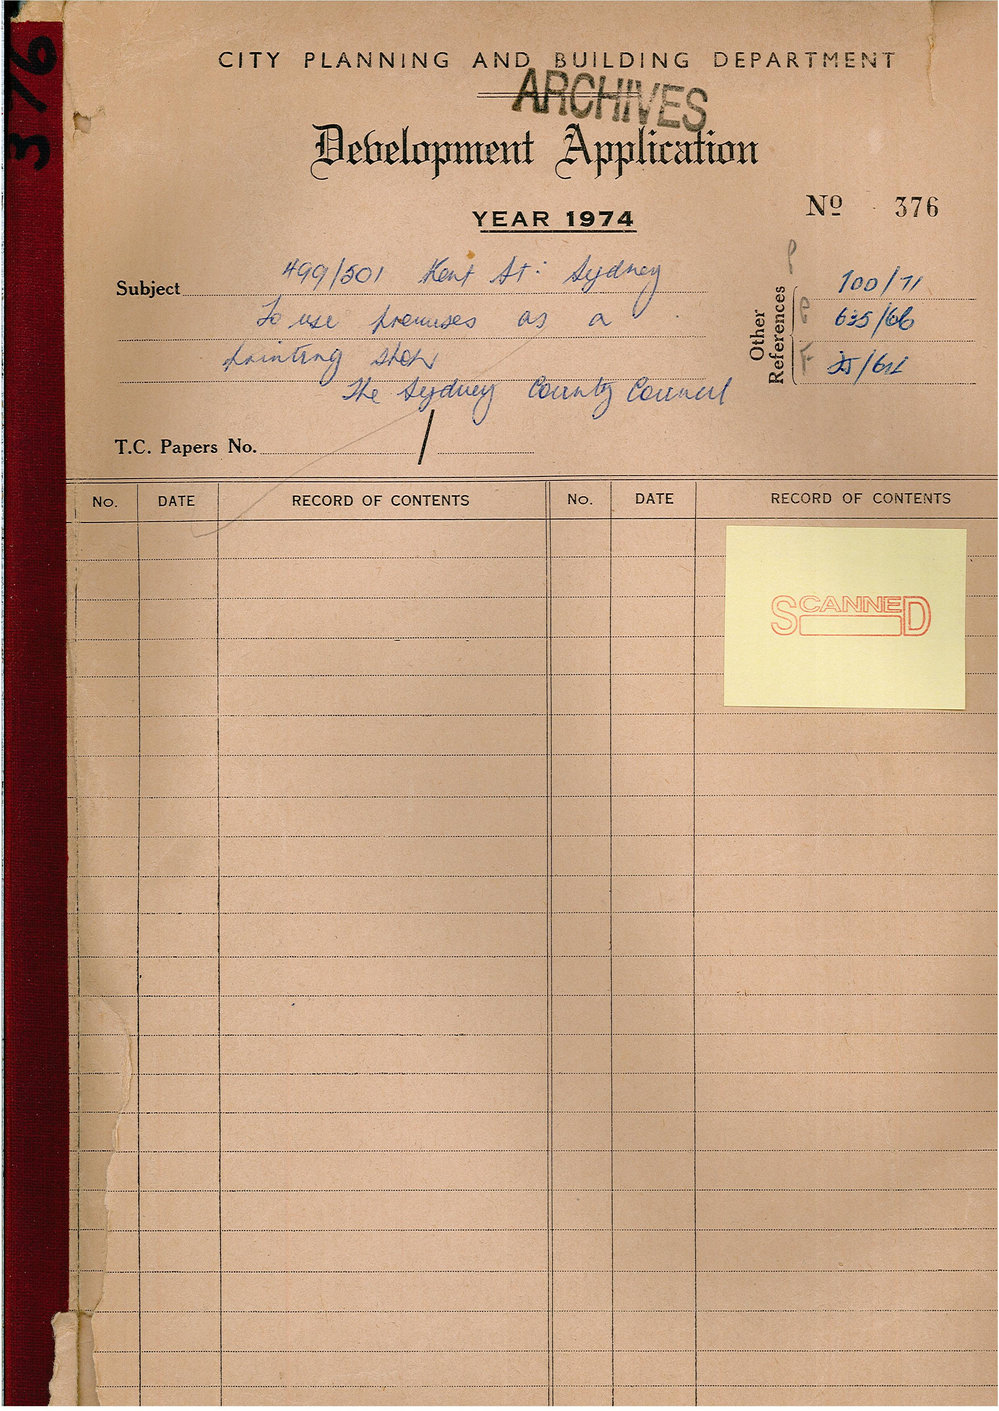 376
CITY PLANNING AND BUILDING DEPARTMENT
ARCHIVES
Development Application
YEAR 1974
Nº 376
Subject 499/501 Kent St: Sydney
To use premises as a
printing shop
The Sydney County Council
Other References
P 100/71
P 635/66
F /62
T.C. Papers No. /
No. DATE RECORD OF CONTENTS No. DATE RECORD OF CONTENTS
SCANNED